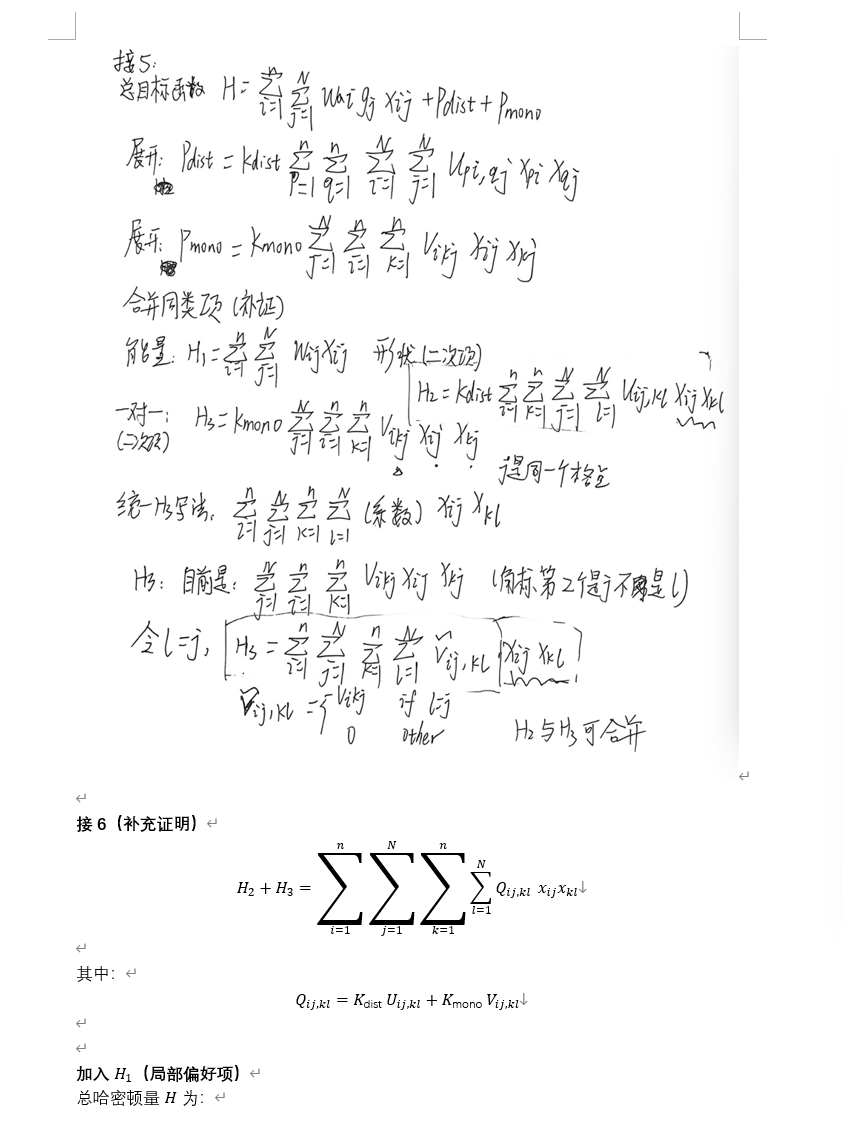 接5:
总目标函数 H = ∑_{i=1}^{n} ∑_{j=1}^{N} w_{ai} g_j x_{ij} + P_{dist} + P_{mono}
展开: P_{dist} = K_{dist} ∑_{p=1}^{n} ∑_{q=1}^{n} ∑_{i=1}^{N} ∑_{j=1}^{N} U_{pi,qj} x_{pi} x_{qj}
展开: P_{mono} = K_{mono} ∑_{j=1}^{N} ∑_{i=1}^{n} ∑_{k=1}^{n} V_{ikj} x_{ij} x_{kj}
合并同类项 (补证)
能量: H_1 = ∑_{i=1}^{n} ∑_{j=1}^{N} w_{ij} x_{ij} 形状 (二次项)
H_2 = K_{dist} ∑_{i=1}^{n} ∑_{k=1}^{n} ∑_{j=1}^{N} ∑_{l=1}^{N} U_{ij,kl} x_{ij} x_{kl}
一对一: (二次项) H_3 = K_{mono} ∑_{j=1}^{N} ∑_{i=1}^{n} ∑_{k=1}^{n} V_{ikj} x_{ij} x_{kj}
提同一个格点
统一H_3写法: ∑_{i=1}^{n} ∑_{j=1}^{N} ∑_{k=1}^{n} ∑_{l=1}^{N} (系数) x_{ij} x_{kl}
H_3: 目前是: ∑_{j=1}^{N} ∑_{i=1}^{n} ∑_{k=1}^{n} V_{ikj} x_{ij} x_{kj} (角标第2个是j不是l)
令l=j, H_3 = ∑_{i=1}^{n} ∑_{j=1}^{N} ∑_{k=1}^{n} ∑_{l=1}^{N} Ṽ_{ij,kl} x_{ij} x_{kl}
Ṽ_{ij,kl} = { V_{ikj} if l=j
0 other
H_2与H_3可合并
接 6（补充证明）
H_2 + H_3 = ∑_{i=1}^{n} ∑_{j=1}^{N} ∑_{k=1}^{n} ∑_{l=1}^{N} Q_{ij,kl} x_{ij}x_{kl}
其中：
Q_{ij,kl} = K_{dist} U_{ij,kl} + K_{mono} V_{ij,kl}
加入 H_1（局部偏好项）
总哈密顿量 H 为：